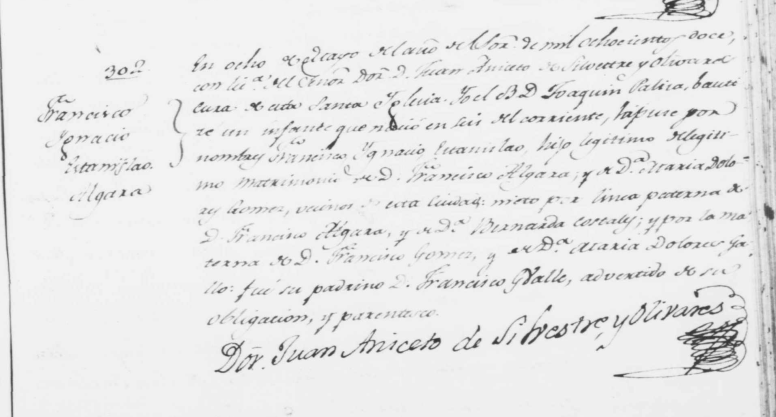 30.
Francisco
Ygnacio
Estanislao.
Algara
En ocho de Mayo del año del Sor. de mil ochocientos doce,
con lica. del Señor Dor. D. Juan Aniceto de Silvestre y Olivares
cura de esta Santa Yglecia. Yo el B. D. Joaquin, bauti
ze un infante que nació en seis del corriente, lo puse por
nombre Franco. Ygnacio Estanislao, hijo legitimo de legiti-
mo matrimonio de D. Francisco Algara, y de Da. Maria Dolo-
res Gomez, vecinos de esta Ciudad: nieto por linea paterna de
D. Francisco Algara, y de Da. Bernarda; y por la ma-
terna de D. Francisco Gomez, y de Da. Maria Dolores Ga-
llo: fue su padrino D. Francisco Valle, advertido de su
obligacion, y parentesco.
Dor. Juan Aniceto de Silvestre, y Olivares